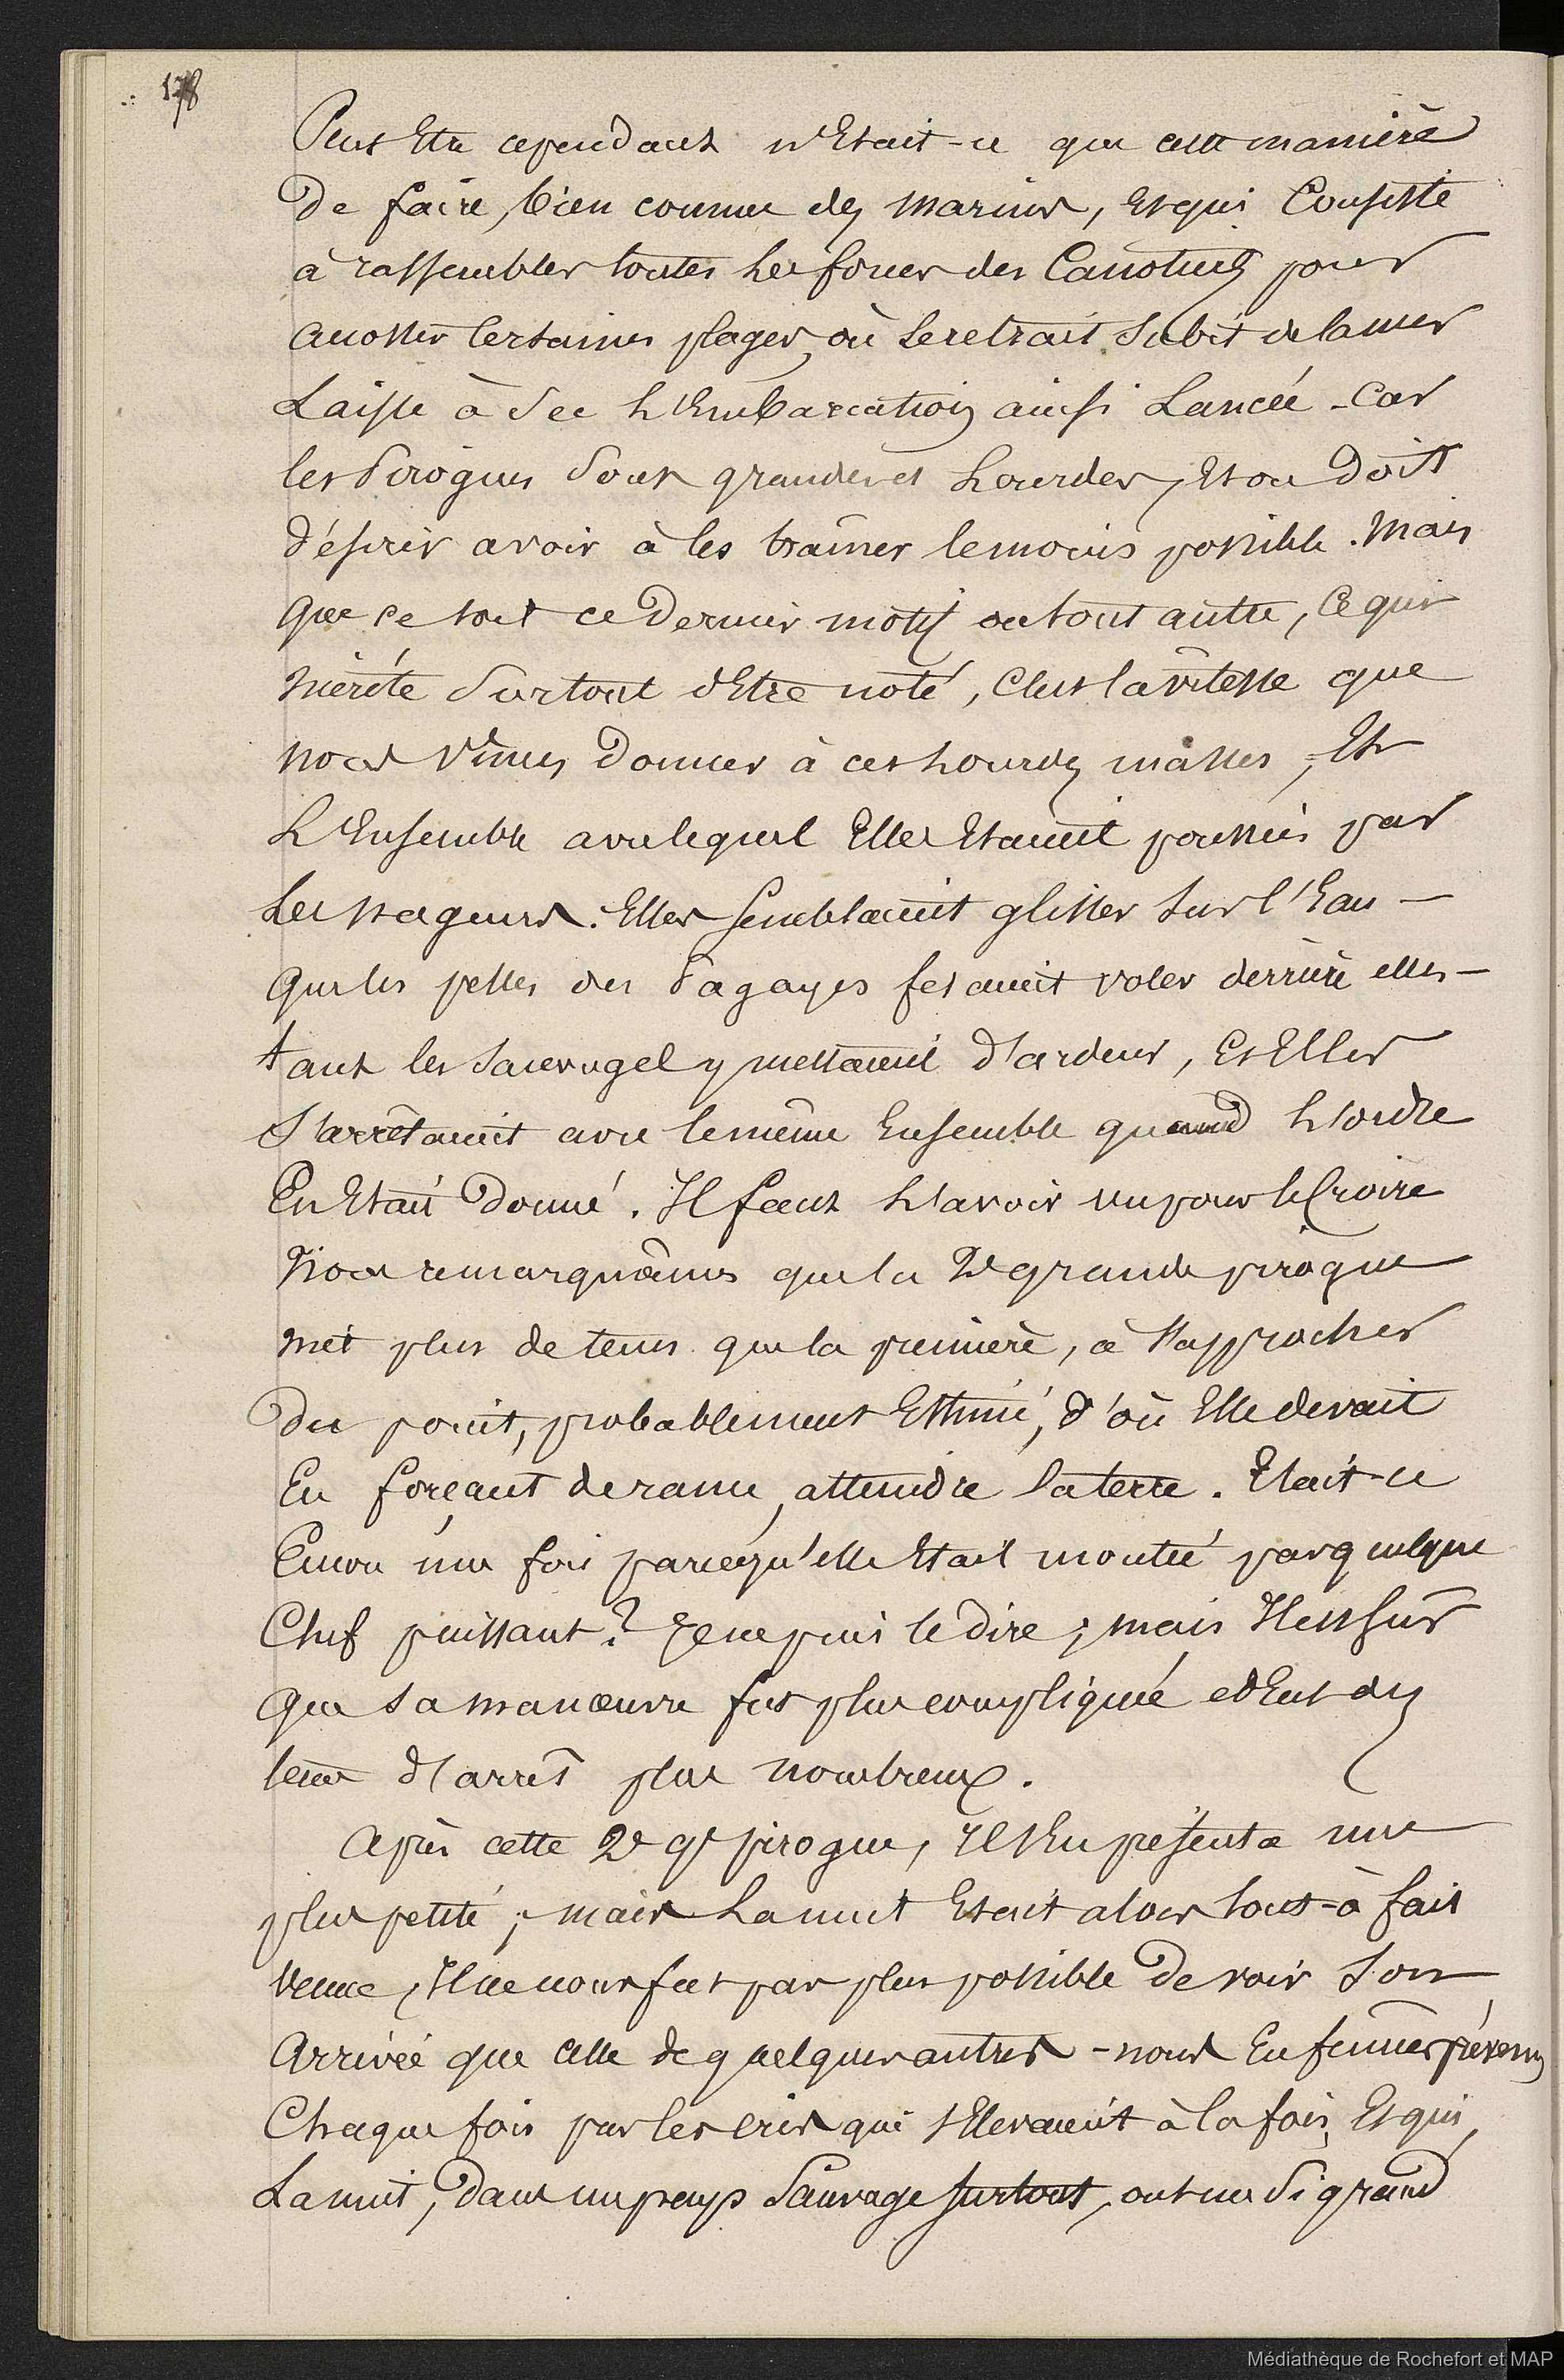 178
Peut Etre cependant n'Etait-ce que cette manière
De faire, bien connue des marins, Et qui Consiste
à rassembler toutes les forces des Canotiers pour
accoster Certaines plages, où le retrait subit de la mer
Laisse à sec l'Embarcation ainsi Lancée - Car
les Pirogues sont grandes et Lourdes, Et on Doit
désirer avoir à les traîner le moins possible. Mais
que ce soit ce Dernier motif ou tout autre, Ce qui
mérite surtout d'Etre noté, C'est la vitesse que
nous vîmes Donner à ces lourdes masses, Et
L'Ensemble avec lequel Elles Etaient poussées par
Les nageurs. Elles semblaient glisser sur l'Eau -
que les pelles des Pagayes fesaient voler derrière elles -
tant les Sauvages y mettaient d'ardeur, Et Elles
S'arrêtaient avec le même Ensemble quand l'ordre
En Etait Donné. Il faut l'avoir vu pour le Croire
Nous remarquâmes que la 2e grande pirogue
met plus de tems que la première, à s'approcher
Du point, probablement Estimé, d'où Elle devait
En forçant de rame, atteindre la terre. Etait-ce
Encore une fois parcequ'elle Etait montée par quelque
Chef puissant? Je ne puis le dire; mais Il est sûr
que sa manœuvre fut plus compliquée et Eut des
tems d'arrêt plus nombreux.
Après cette 2e gde pirogue, Il s'En présenta une
plus petite; mais La nuit Etait alors tout-à fait
venue, Il ne nous fut pas plus possible De voir son
Arrivée que Celle de quelques autres - nous En fûmes prévenus
Chaque fois par les cris qui s'Elevaient à la fois, Et qui,
La nuit, Dans un pays Sauvage surtout, ont un si grand
Médiathèque de Rochefort et MAP